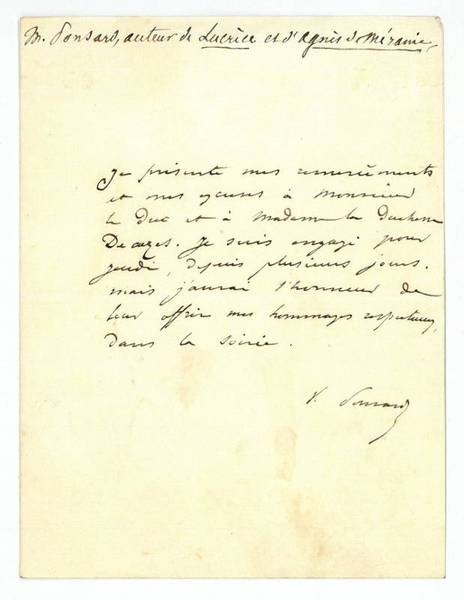 M. Ponsard, auteur de Lucrèce et d'Agnès de Méranie,
Je présente mes remerciements
et mes excuses à Monsieur
le Duc et à Madame la Duchesse
Decazes. Je suis engagé pour
jeudi, depuis plusieurs jours.
mais j'aurai l'honneur de
leur offrir mes hommages respectueux,
dans la soirée.
F. Ponsard